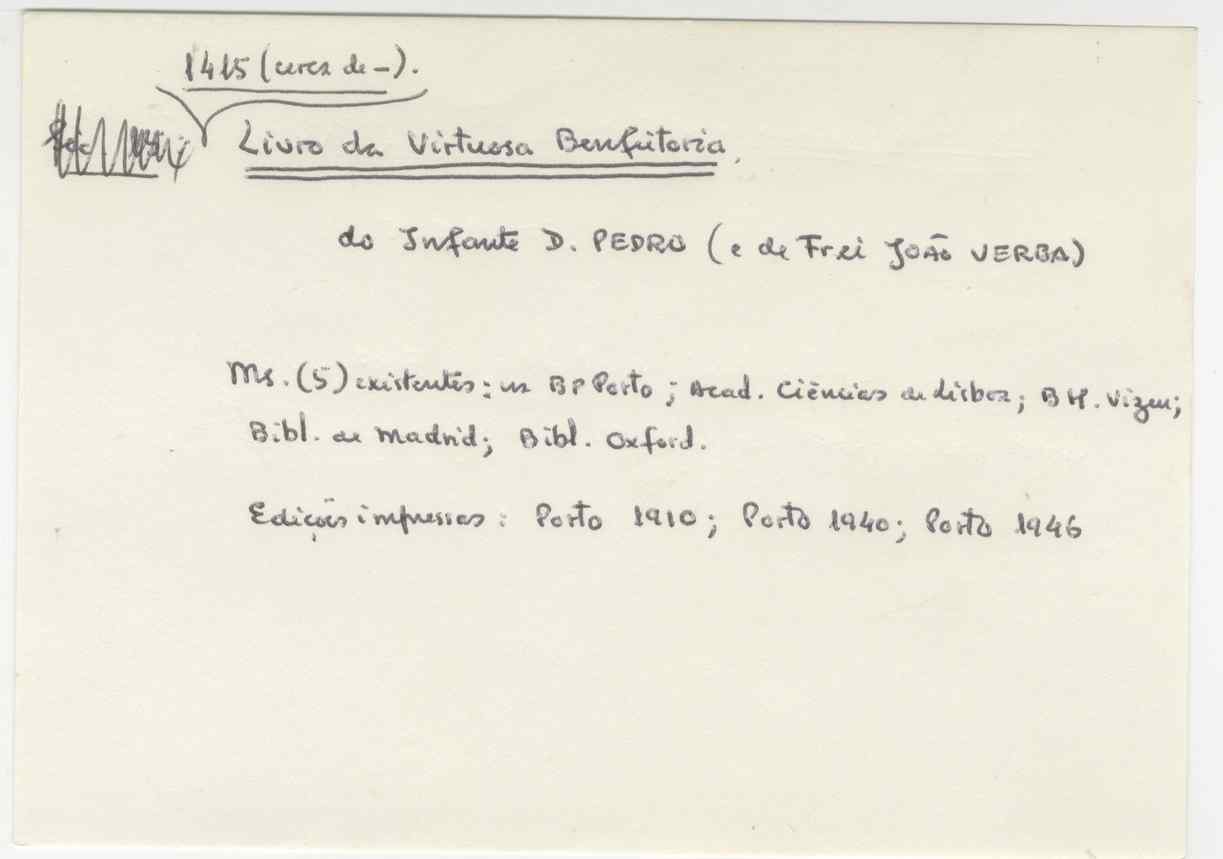 1415 (cerca de -).
Livro da Virtuosa Benfeitoria,
do Infante D. PEDRO (e de Frei JOÃO VERBA)
Ms. (5) existentes: na BP Porto; Acad. Ciências de Lisboa; B M. Vizeu;
Bibl. de Madrid; Bibl. Oxford.
Edições impressas: Porto 1910; Porto 1940; Porto 1946